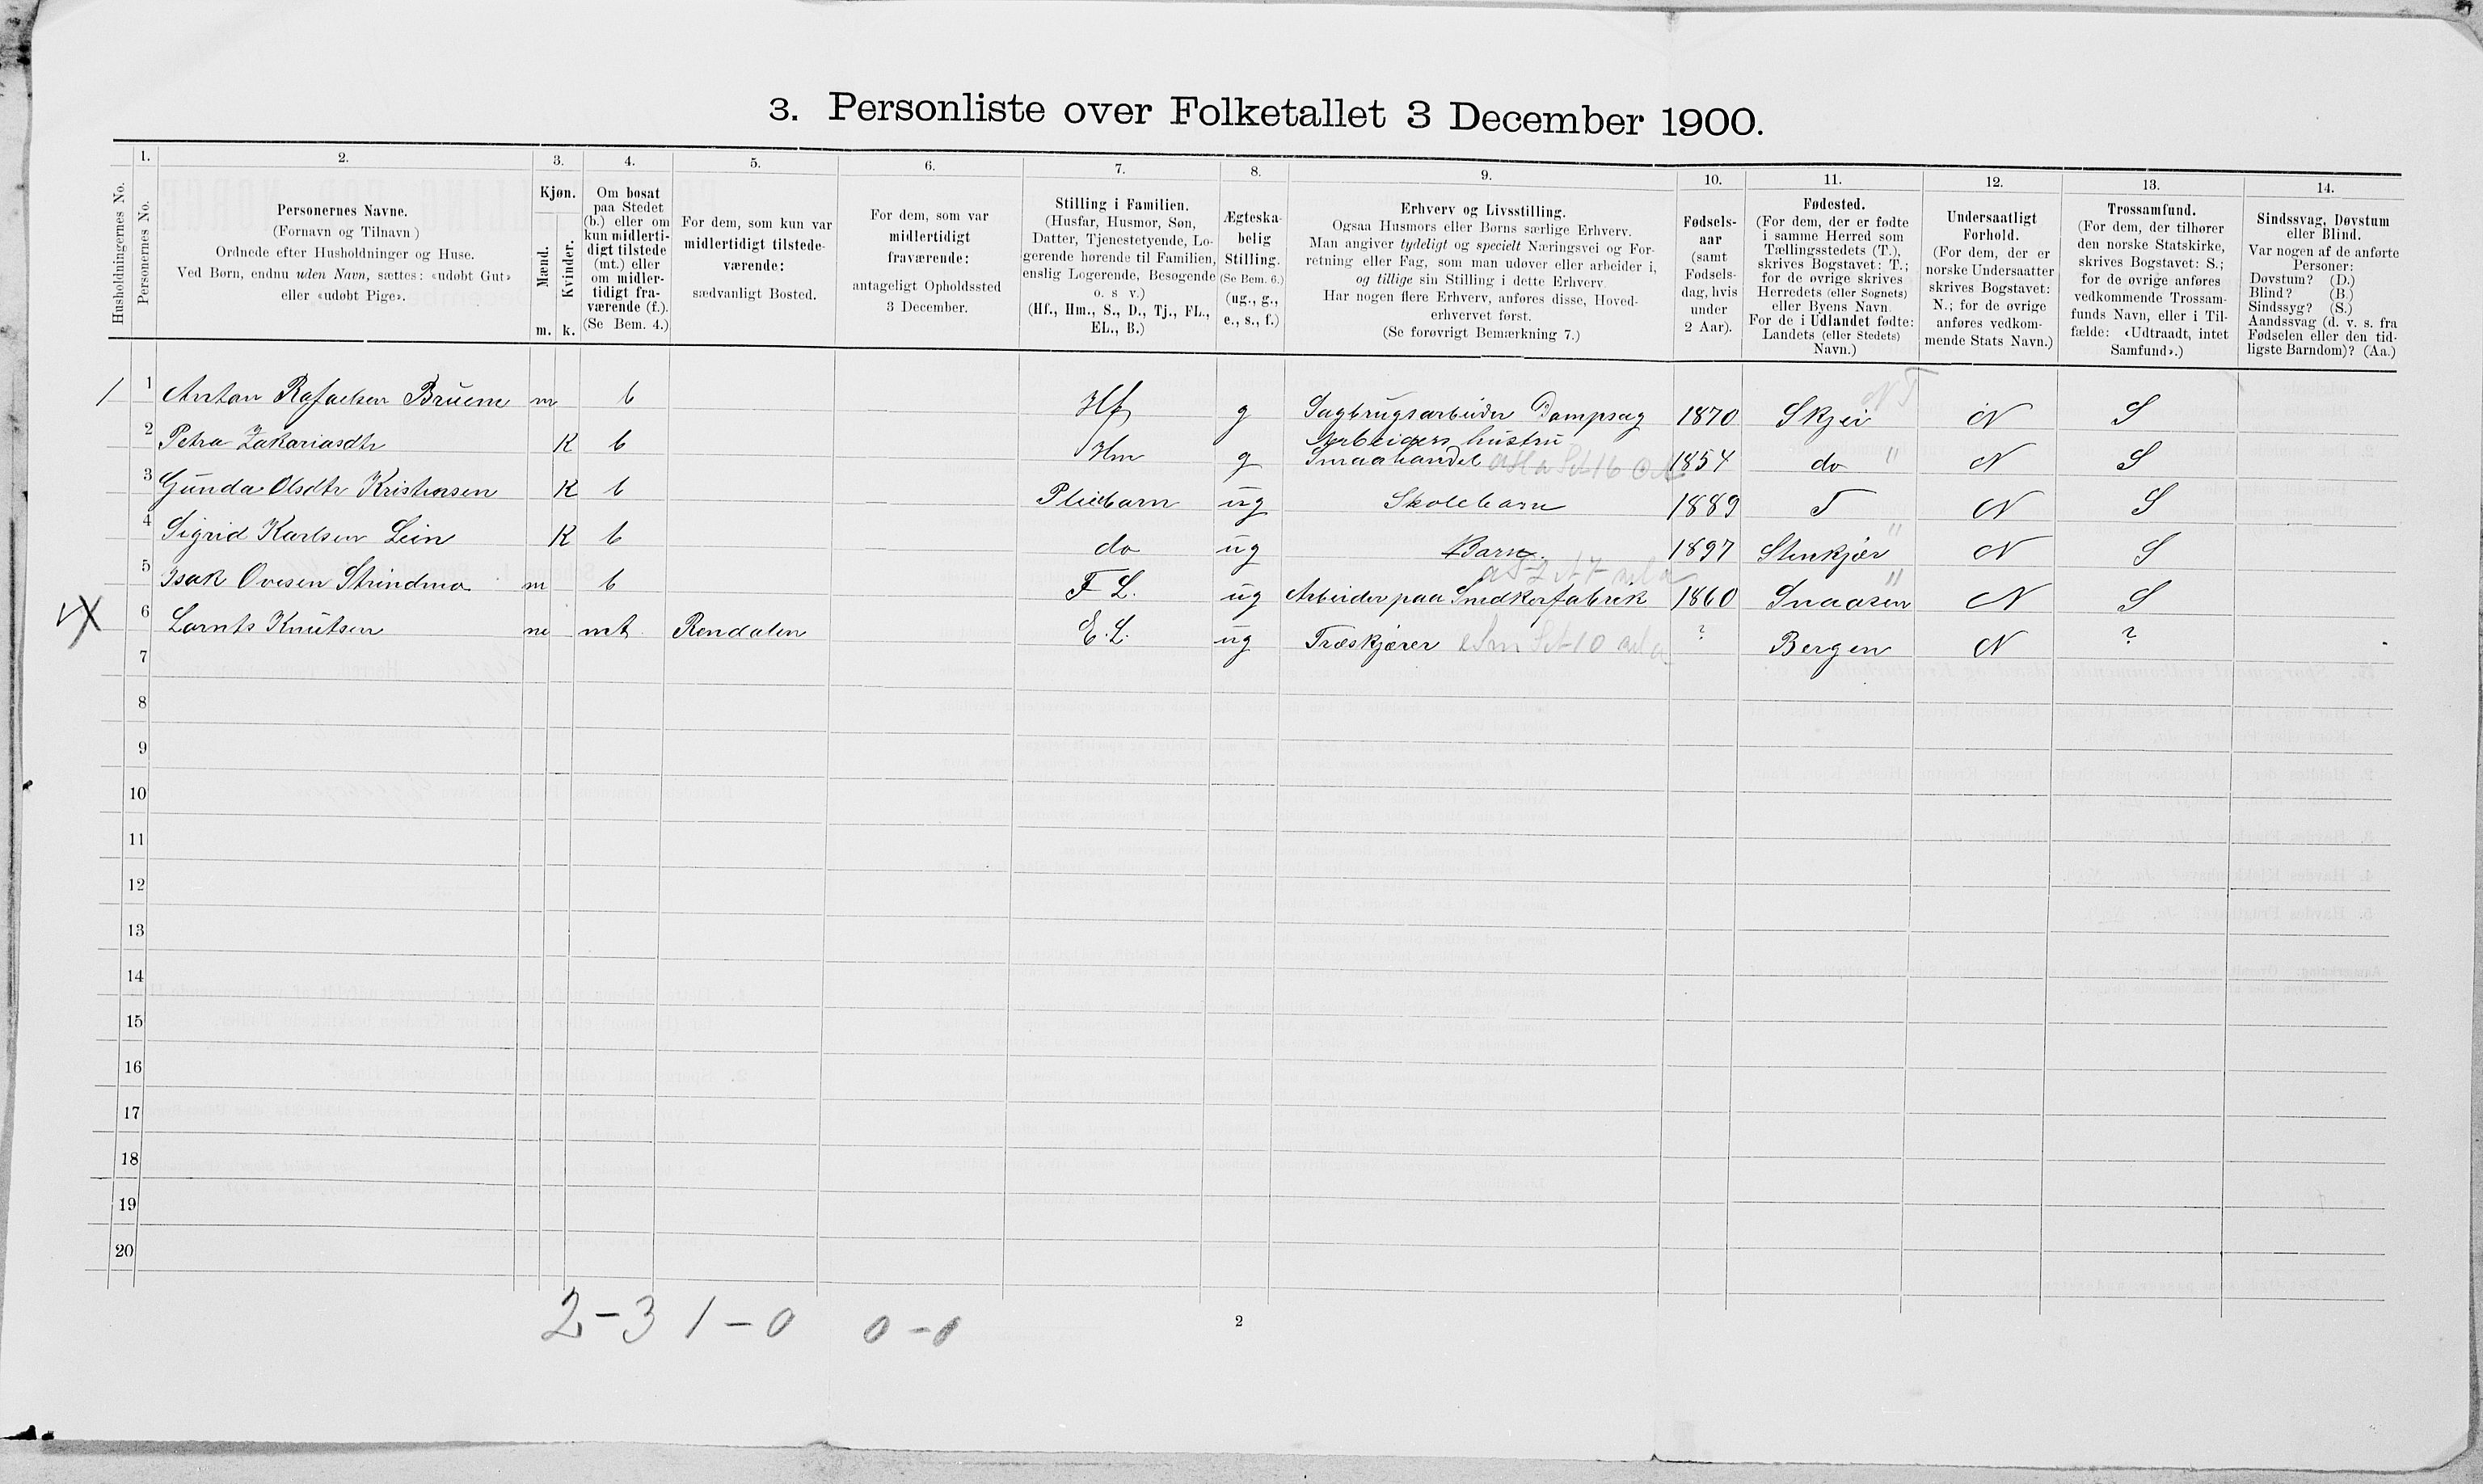 3. Personliste over Folketallet 3 December 1900.
Husholdningernes No.
1.
Personernes No.
2.
Personernes Navne.
(Fornavn og Tilnavn)
Ordnede efter Husholdninger og Huse.
Ved Børn, endnu uden Navn, sættes: «udøbt Gut»
eller «udøbt Pige».
3.
Kjøn.
Mænd.
Kvinder.
m. k.
4.
Om bosat
paa Stedet
(b.) eller om
kun midlerti-
digt tilstede
(mt.) eller
om midler-
tidigt fra-
værende (f.).
(Se Bem. 4.)
5.
For dem, som kun var
midlertidigt tilstede-
værende:
sædvanligt Bosted.
6.
For dem, som var
midlertidigt
fraværende:
antageligt Opholdssted
3 December.
7.
Stilling i Familien.
(Husfar, Husmor, Søn,
Datter, Tjenestetyende, Lo-
gerende hørende til Familien,
enslig Logerende, Besøgende
o. s v.)
(Hf., Hm., S., D., Tj., FL.,
EL., B.)
8.
Ægteska-
belig
Stilling.
(Se Bem. 6.)
(ug., g.,
e., s., f.)
9.
Erhverv og Livsstilling.
Ogsaa Husmors eller Børns særlige Erhverv.
Man angiver tydeligt og specielt Næringsvei og For-
retning eller Fag, som man udøver eller arbeider i,
og tillige sin Stilling i dette Erhverv.
Har nogen flere Erhverv, anføres disse, Hoved-
erhvervet først.
(Se forøvrigt Bemærkning 7.)
10.
Fødsels-
aar
(samt
Fødsels-
dag, hvis
under
2 Aar).
11.
Fødested.
(For dem, der er fødte
i samme Herred som
Tællingsstedets (T.),
skrives Bogstavet: T.;
for de øvrige skrives
Herredets (eller Sognets)
eller Byens Navn.
For de i Udlandet fødte:
Landets (eller Stedets)
Navn.)
12.
Undersaatligt
Forhold.
(For dem, der er
norske Undersaatter
skrives Bogstavet:
N.; for de øvrige
anføres vedkom-
mende Stats Navn.)
13.
Trossamfund.
(For dem, der tilhører
den norske Statskirke,
skrives Bogstavet: S.;
for de øvrige anføres
vedkommende Trossam-
funds Navn, eller i Til-
fælde: «Udtraadt, intet
Samfund».)
14.
Sindssvag, Døvstum
eller Blind.
Var nogen af de anførte
Personer:
Døvstum? (D.)
Blind? (B.)
Sindssyg? (S.)
Aandssvag (d. v. s. fra
Fødselen eller den tid-
ligste Barndom)? (Aa.)
/ 1 Anton Rafaelsen Bruem m b Hf g Sagbrugsarbeider Dampsag 1870 Skjei N T N S
2 Petra Zakariasdtr K b Hm g Arbeiders hustru Smaahandel 1854 do " N S
3 Gunda Olsdtr Kristensen K b Pleiebarn ug Skolebarn 1889 T N S
4 Sigrid Karlsen Lein K b do ug Barn. 1897 Stenkjær " N S
5 Isak Ovesen Strindmo m b F L. ug Arbeider paa Snedkerfabrik 1860 Snaasen " N S
X 6 Lornts Knutsen m mt Rendalen E. L. ug Træskjærer ? Bergen N ?
7
8
9
10
11
12
13
14
15
16
17
18
19
20
2-3 1-0 0-0
2